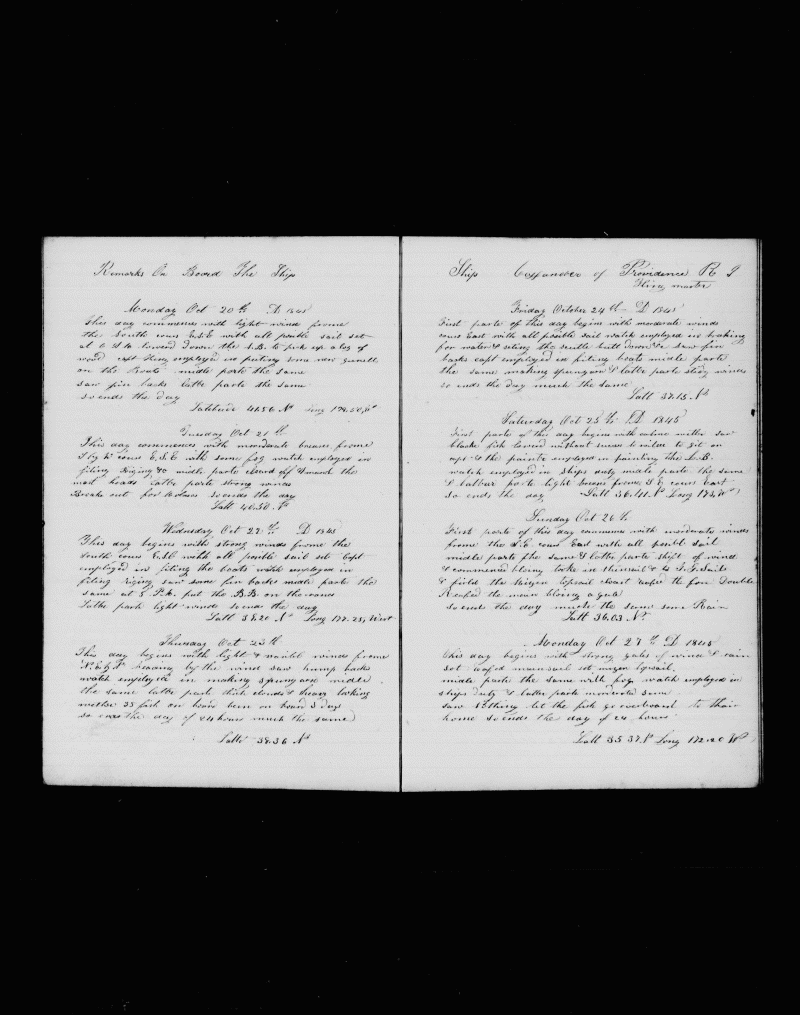 Remarks On Board The Ship
Monday Oct 20th AD 1845
This day commences with light winds frome
the South cours E.S.E with all posible sail set
at 6 lowerd down the L.B. to pick up a log of
wood capt employed in puting some new
on the Boats midle parte the same
saw fin backs latter parte the same
so ends the day
Latitude 41.56 N Long
Tuesday Oct 21th
This day commences with mordarate breases frome
S by W cours E,S,E with some fog watch employed in
fiting riging &c midle parte the
mast heads latter parte strong winds
Breake out for so ends the day
Latt 40.50 N
Wednesday Oct 22th AD 1845
This day begins with strong winds frome the
South cours E.S.E with all posible sail set Capt
employed in fiting the boats watch employed in
fiting riging saw some fin backs midle parte the
same at 8 put the B.B. on the cranes
Latter parte light winds so ends the day
Latt 39.20 N Long 172.25 West
Thursday Oct 23th
This day begins with light & varible winds frome
N.E by N heading by the wind saw hump backs
watch employed in making spunyarn midle
the same latter parte thick clouds & heavy looking
wether 35 fish on been on board 3 days
so ends the day of 24 hours much the same
Latt 38.36 N
Ship of Providence R I
master
Friday October 24th AD 1845
First parte of this day begins with moderate winds
cours East with all posible sail watch employed in
for water & the scuttle butt down &c saw fin
backs capt employed in fiting boats midle parte
the same making spunyarn & latter parte stidy winds
so ends the day much the same
Latt 37.15 N
Saturday Oct 25th AD 1845
First parte of this day begins with wether saw
black fish lowerd without sucses to git on
up to the painte employed in painting the L.B.
watch employed in ships duty midle parte the same
& lattur parte light breases frome S E cours East
so ends the day Latt 36.41 N Long
Sunday Oct 26th
First parte of this day commences with moderate winds
frome the S.E. cours East with all posibl sail
midle parte the same & latter parte shift of wind
& commenced bloing tooke in & sails
& furld the Mizen topsail reefed the fore Double
Reefed the mean bloing a gale
so ends the day much the same some Rain
Latt 36.03 N
Monday Oct 27th AD 1845
this day begins with strong gales of wind & rain
Set reefed mainsail set mizen topsail
midle parte the same with fog watch employed in
ships duty & latter parte moderate some
saw nothing let the fish go overboard to thair
home so ends the day of 24 hours
Latt 35.37 N Long 172.20 W